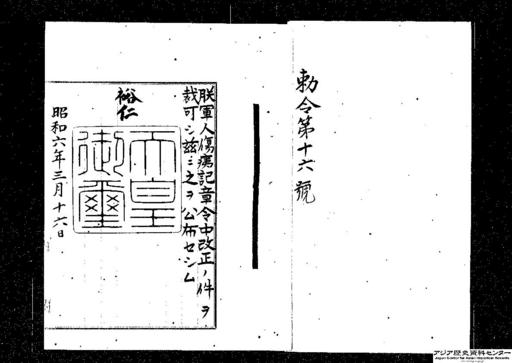 勅令第十六號
朕軍人傷痍記章令中改正ノ件ヲ
裁可シ茲ニ之ヲ公布セシム
裕仁
天皇
御璽
昭和六年三月十六日
アジア歴史資料センター
Japan Center for Asian Historical Records